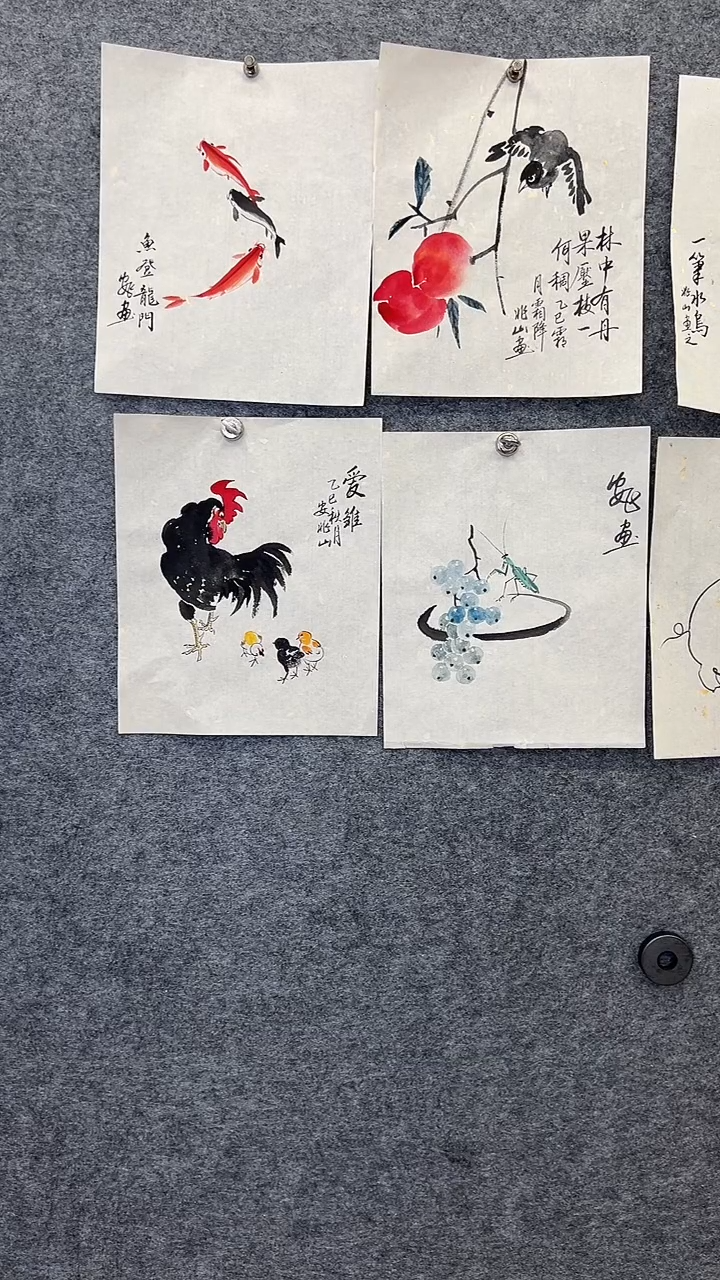 魚登龍門
畫
林中有丹
果壓枝一
何稠乙巳霜
月霜降
兆山畫
一筆水鳥
兆山畫之
爱雏
乙巳秋月
安兆山
畫